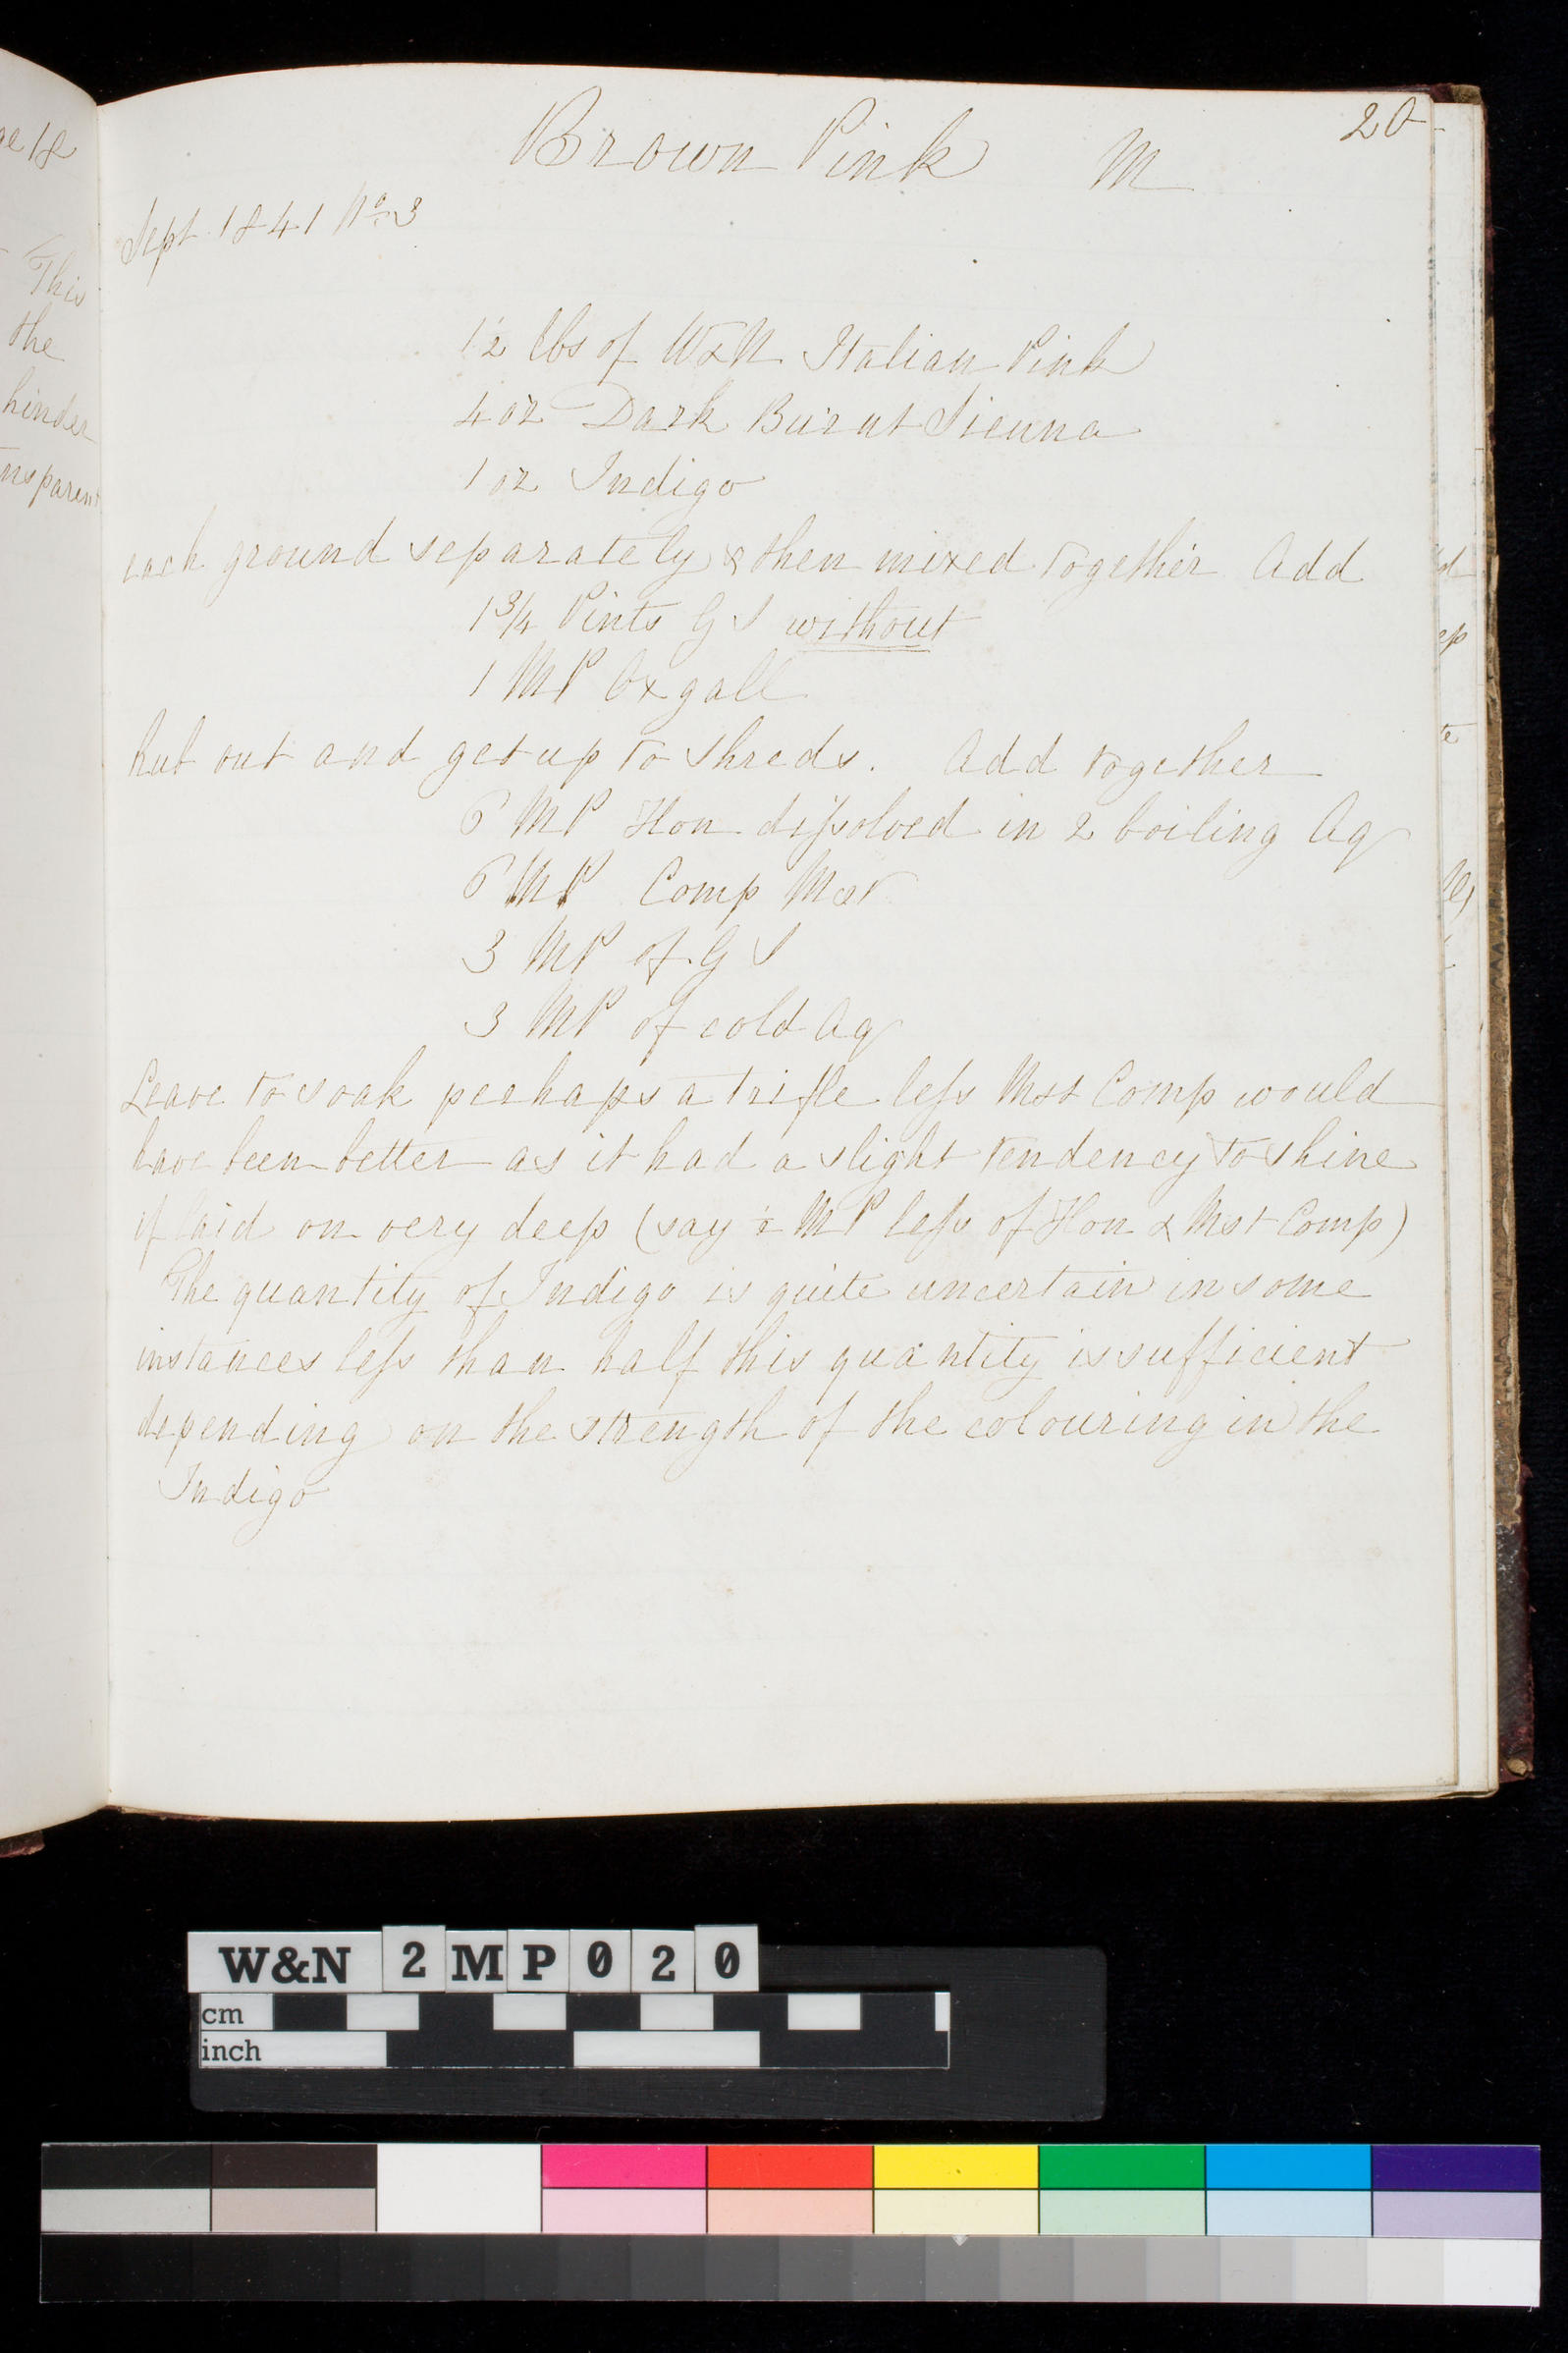 Brown Pink M
20
Sept 1841 No 3
12 lbs of W&N Italian Pink
4 oz Dark Burnt Sienna
1 oz Indigo
each ground separately & then mixed together Add
1 3/4 Pints G S without
1 MP Oxgall
but out and get up to shreds. Add together
6 MP Hon dissolved in 2 boiling Aq
6 MP Comp Mst
3 MP of G S
3 MP of cold Aq
Leave to soak perhaps a trifle less Mst Comp would
have been better as it had a slight tendency to shine
if laid on very deep (say MP less of Hon & Mst Comp)
The quantity of Indigo is quite uncertain in some
instances less than half this quantity is sufficient
depending on the strength of the colouring in the
Indigo
This
the
hinder
W&N 2MP020
cm
inch